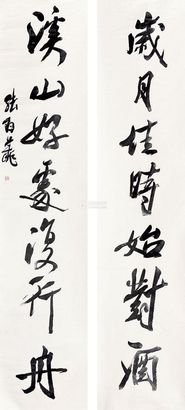 歲月佳時始對酒
溪山好處復行舟
張百熙